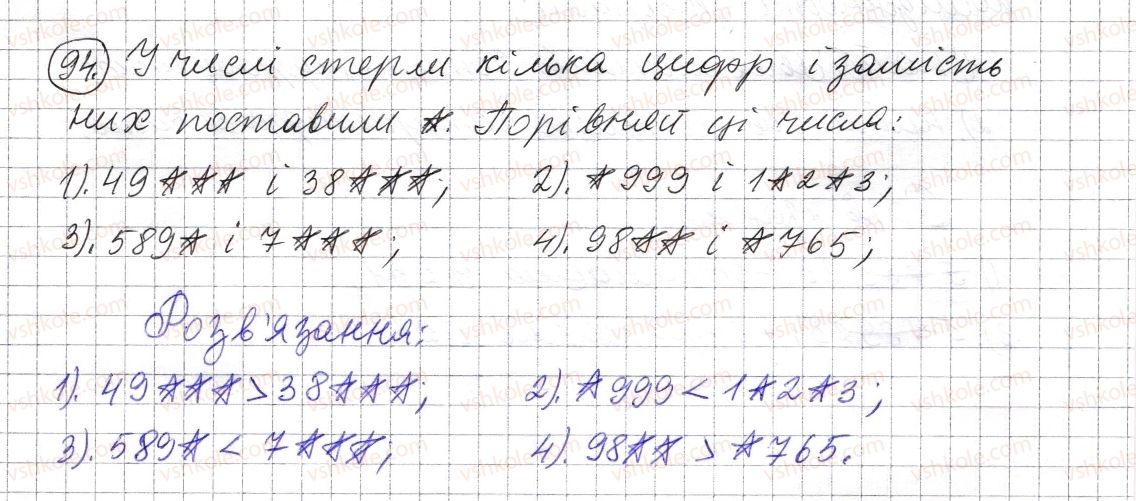 94. У числі стерли кілька цифр і замість
них поставили *. Порівняй ці числа:
1). 49*** і 38***; 2). *999 і 1*2*3;
3). 589* і 7***; 4). 98** і *765;
Розв'язання:
1). 49*** > 38***; 2). *999 < 1*2*3;
3). 589* < 7***; 4). 98** > *765.